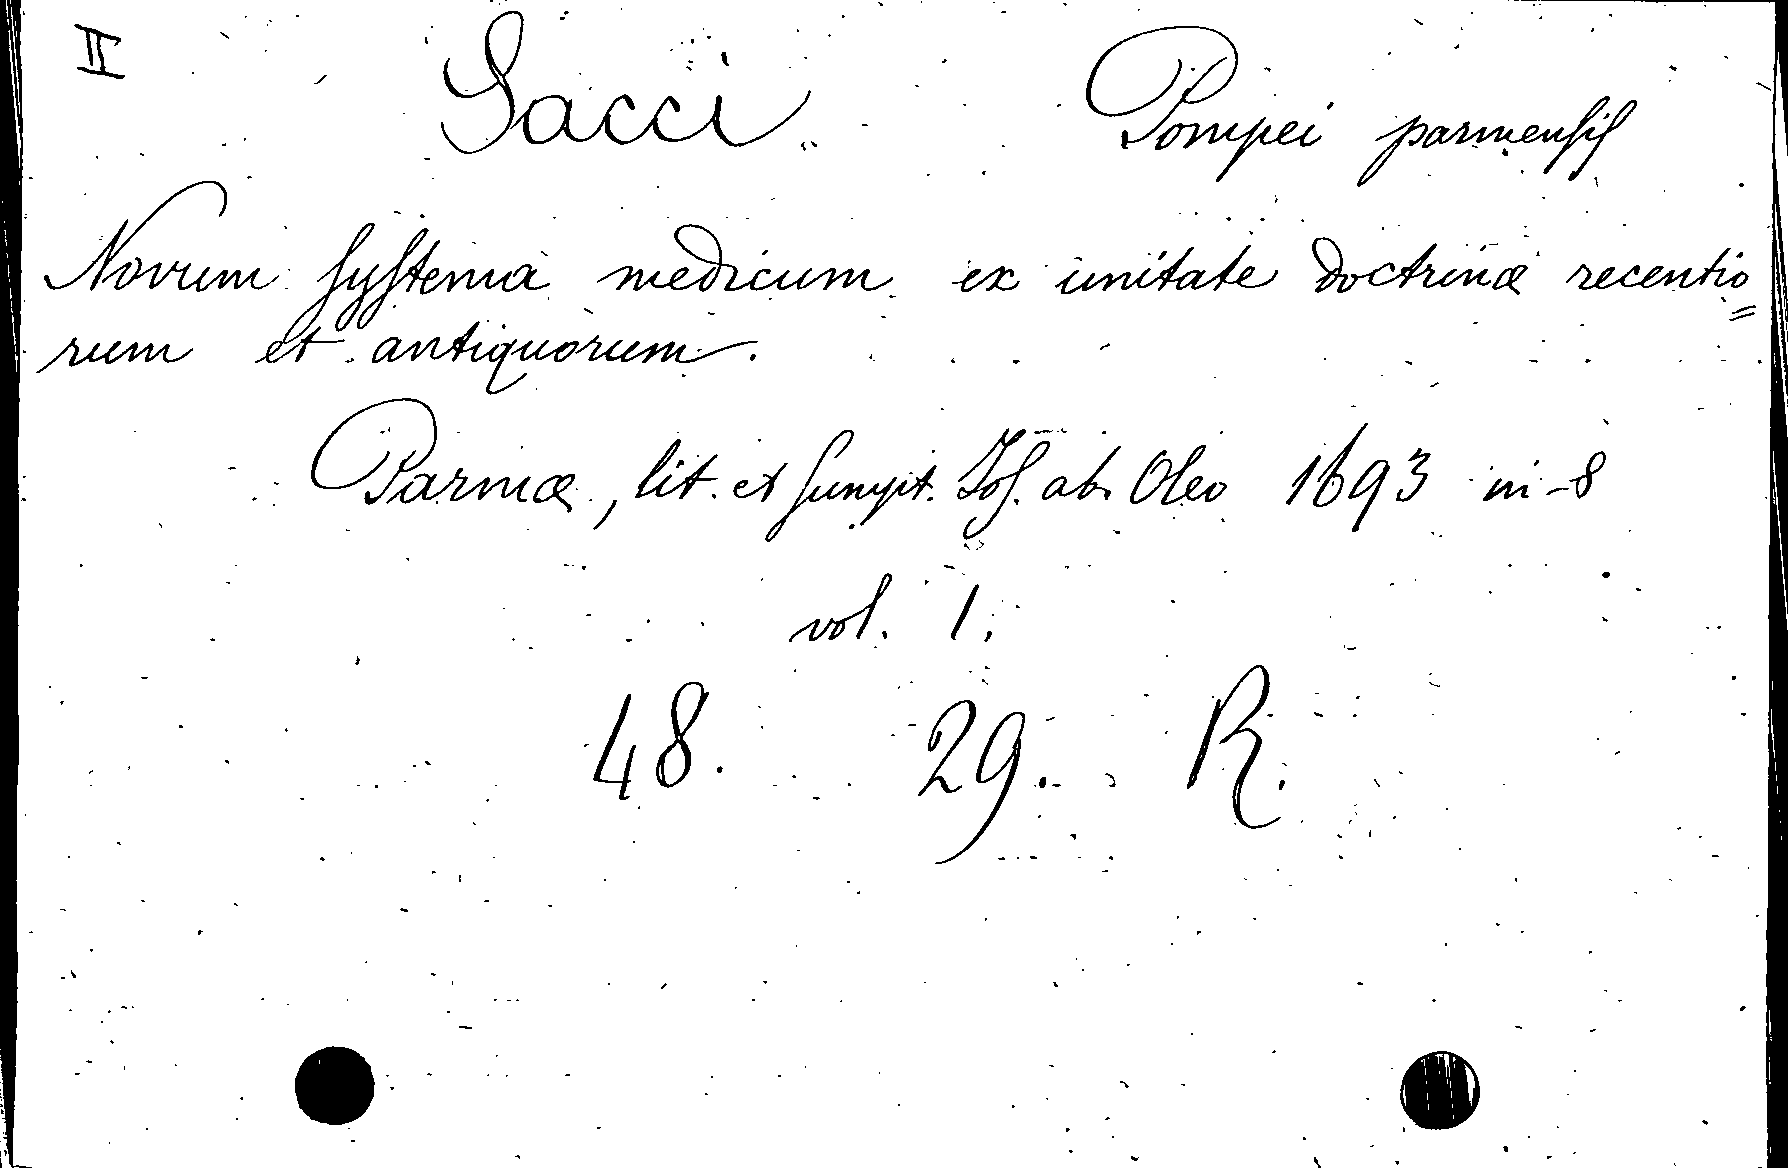 II Sacci Pompei parmensis
Novum systema medicum ex unitate doctrinæ recentio=
rum et antiquorum.
Parmæ, lit. et sumpt. Jos. ab Oleo 1693 in-8
vol. 1.
48. 29. R.